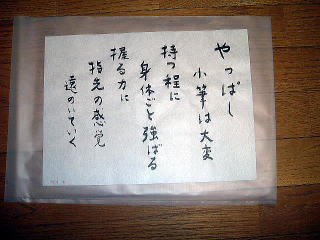 やっぱし
小筆は大変
持つ程に
身体ごと強ばる
握る力に
指先の感覚
遠のいていく